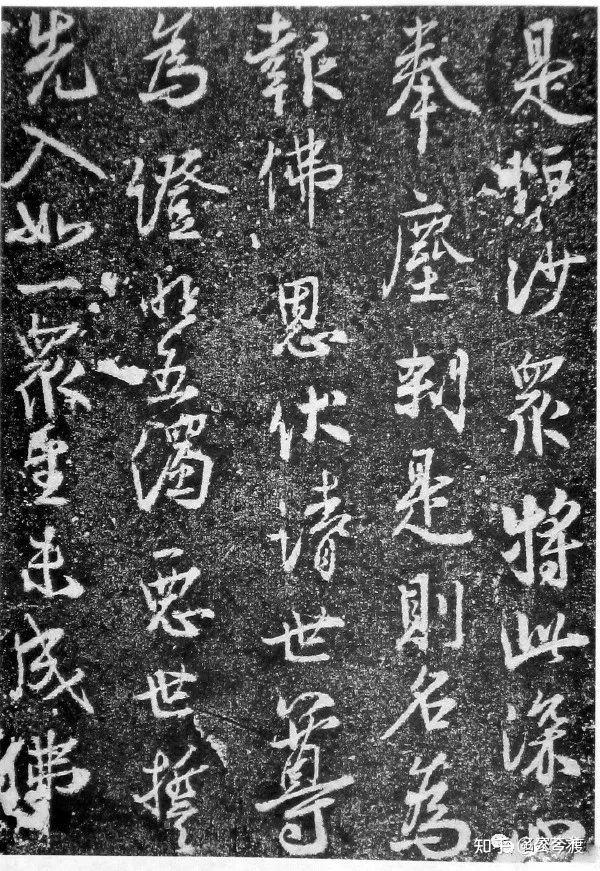 是恒沙眾將此深心
奉塵刹是則名為
報佛恩伏請世尊
為證明五濁惡世誓
先入如一眾生未成佛
知乎